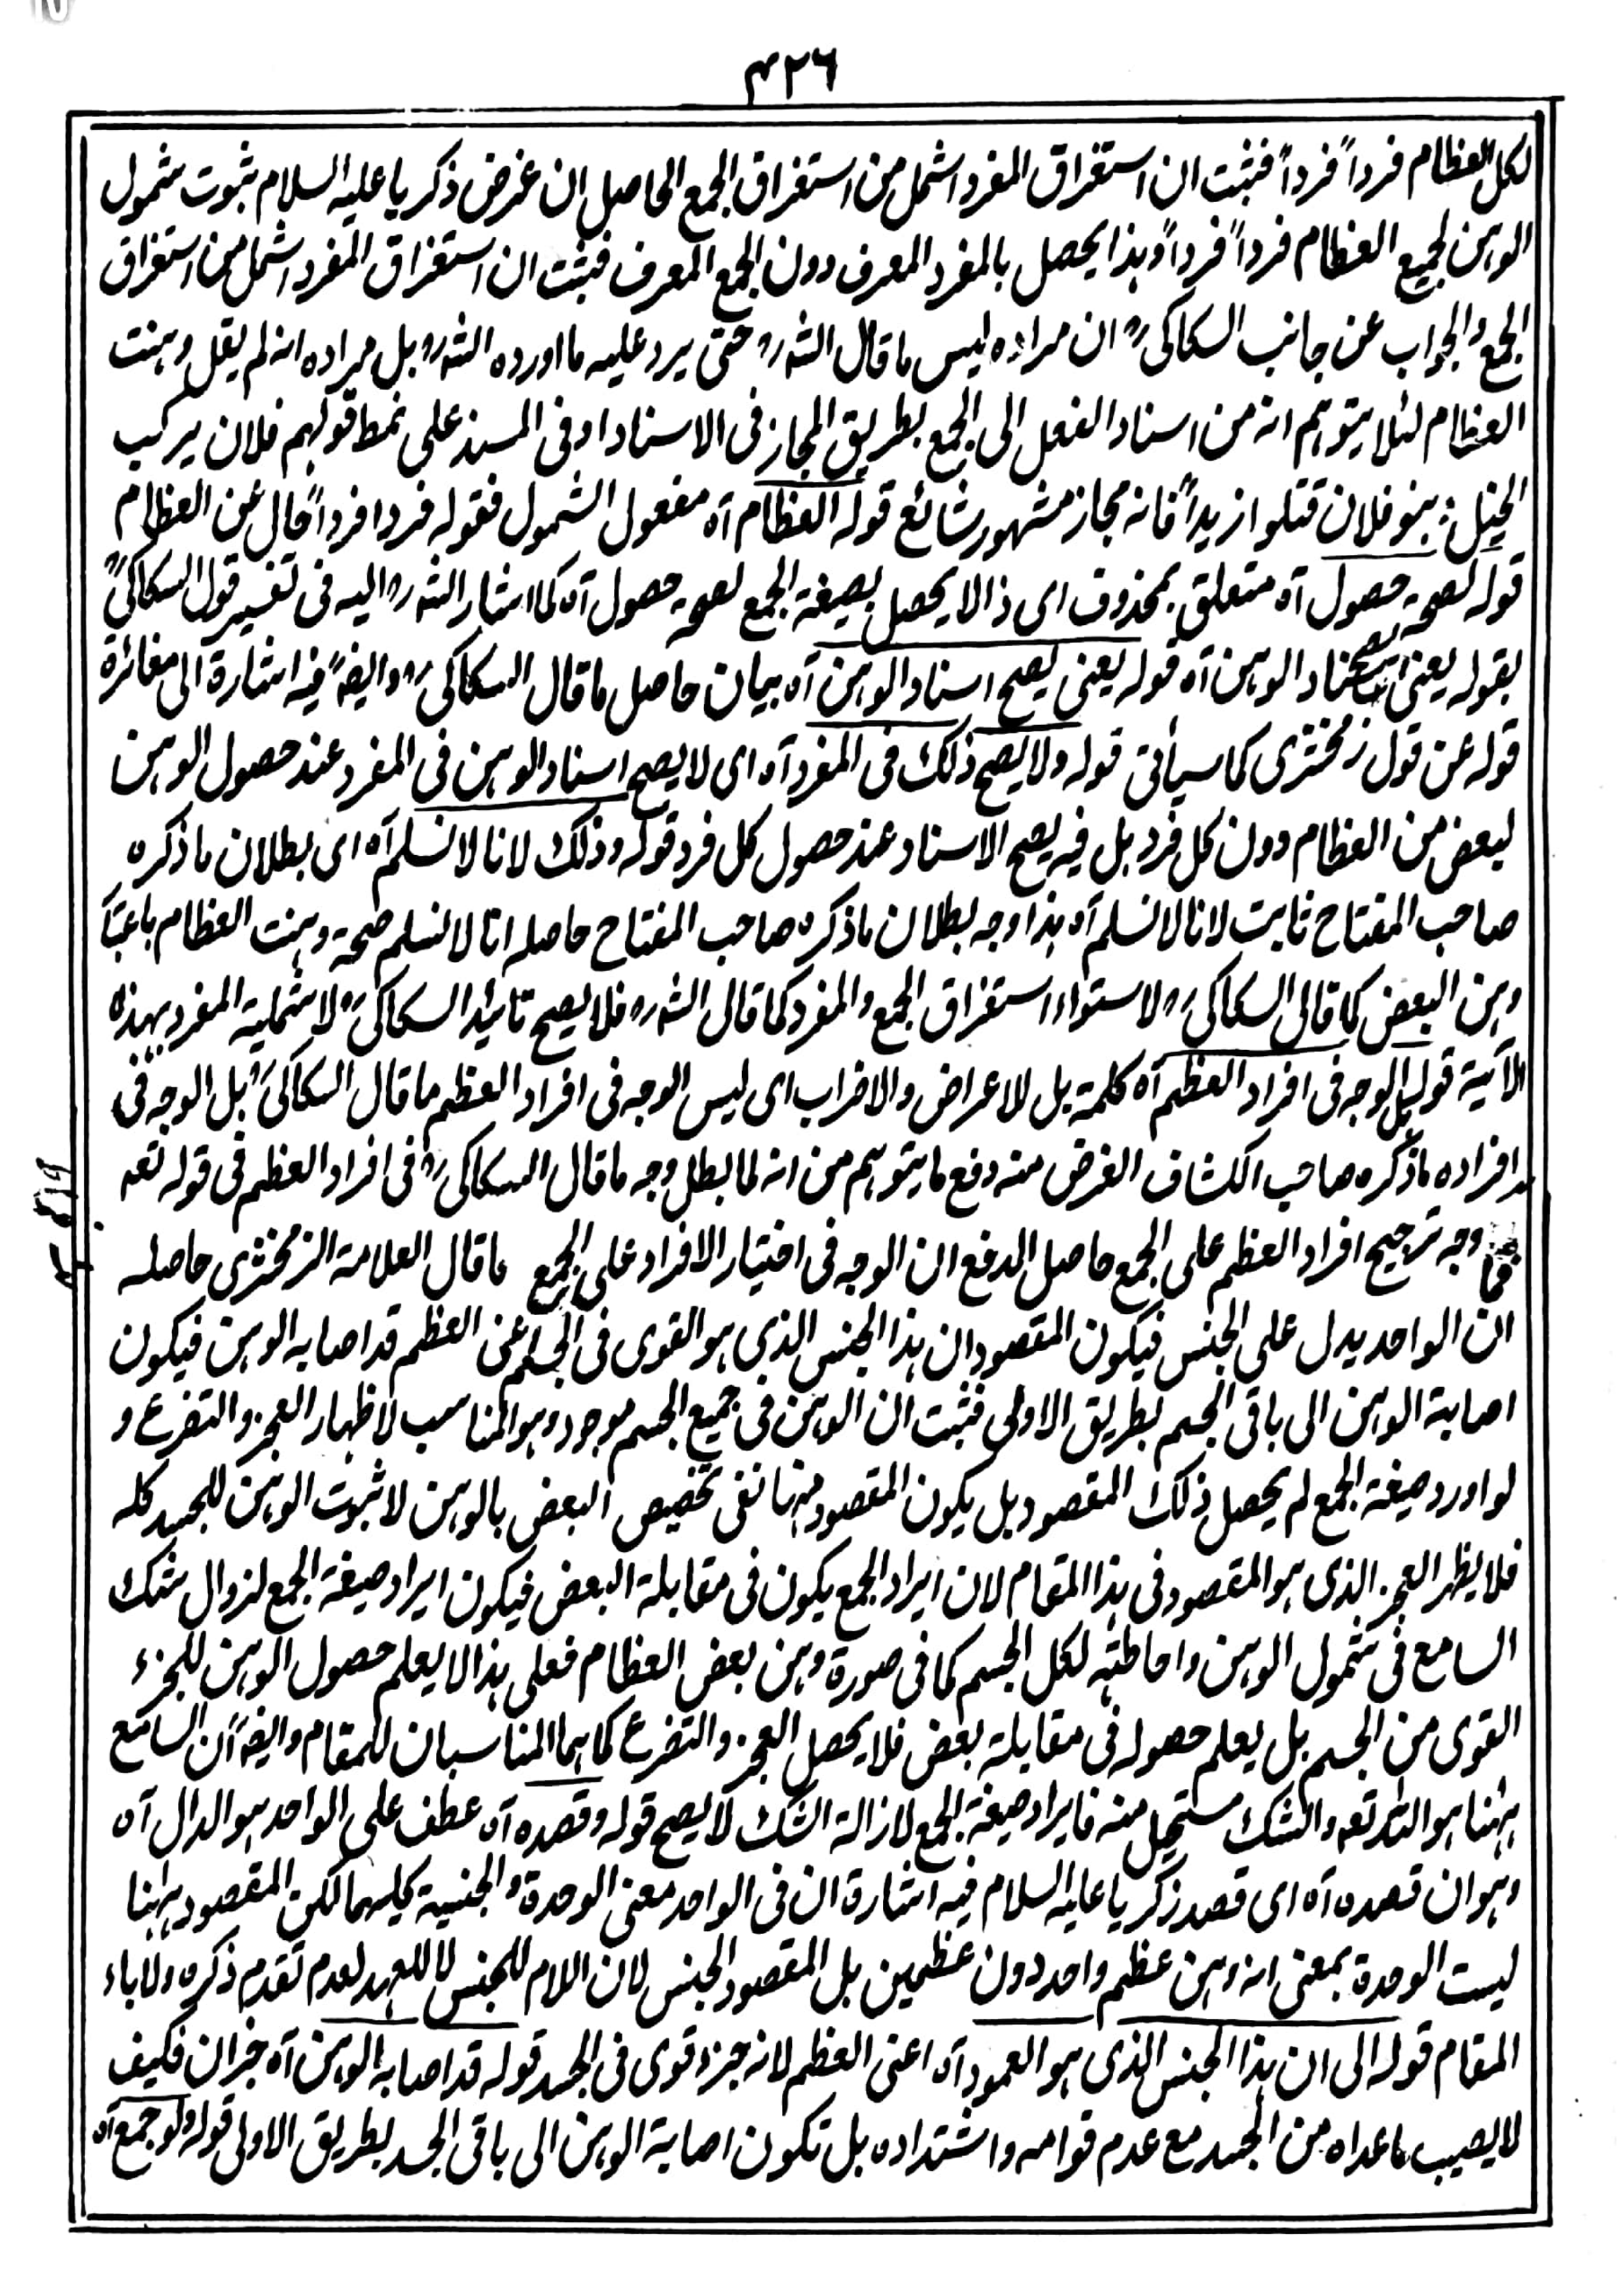 ۴۲۶
لکل العظام فرداً فرداً فثبت ان استغراق المفرد اشمل من استغراق الجمع الحاصل ان غرض ذکریا علیه السلام ثبوت شمول
الوہن لجمیع العظام فرداً فرداً وہذا یحصل بالمفرد المعرف دون الجمع المعرف فثبت ان استغراق المفرد اشمل من استغراق
الجمع والجواب عن جانب السکاکی ؒ ان مراده لیس ما قال الشہ ؒ حتی یرد علیه ما اورده الشہ ؒ بل مراده انه لم یقل وہنت
العظام لئلا یتوہم انه من اسناد الفعل الی الجمع بطریق المجاز فی الاسناد او فی المسند علی نمط قولہم فلان یرکب
الخیل : بنو فلان قتلوا زیداً فانه مجاز مشہور شائع قوله العظام آه مفعول الشمول فقوله فردا فرداً حال عن العظام
قوله لصحة حصول آه متعلق بمحذوف ای ذا لا یحصل بصیغة الجمع لصحة حصول آه کما اشار الشہ ؒ الیه فی تفسیر قول السکاکی ؒ
بقوله یعنی یصح اسناد الوہن آه قوله یعنی یصح اسناد الوہن آه بیان حاصل ما قال السکاکی ؒ وایضاً فیه اشارة الی مغائرة
قوله عن قول زمخشری کما سیأتی قوله ولا یصح ذلک فی المفرد آه ای لا یصح اسناد الوہن فی المفرد عند حصول الوہن
لبعض من العظام دون کل فرد بل فیه یصح الاسناد عند حصول کل فرد قوله وذلک لانا لا نسلم آه ای بطلان ما ذکره
صاحب المفتاح ثابت لانا لا نسلم آه ہذا وجه بطلان ما ذکره صاحب المفتاح حاصله انا لا نسلم صحة وہنت العظام باعتبار
وہن البعض کما قال السکاکی ؒ لاستواء استغراق الجمع والمفرد کما قال الشہ ؒ فلا یصح تائید السکاکی ؒ لاشملیة المفرد بہذه
الآیة قوله بل الوجه فی افراد العظم آه کلمة بل للاعراض والاضراب ای لیس الوجه فی افراد العظم ما قال السکاکی ؒ بل الوجه فی
افراده ما ذکره صاحب الکشاف الغرض منه دفع ما یتوہم من انه لما بطل وجه ما قال السکاکی ؒ فی افراد العظم فی قوله تعہ
فما وجه ترجیح افراد العظم علی الجمع حاصل الدفع ان الوجه فی اختیار الافراد علی الجمع ما قال العلامة الزمخشری حاصله
ان الواحد یدل علی الجنس فیکون المقصود ان ہذا الجنس الذی ہو القوی فی الجسم عن العظم قد اصابه الوہن فیکون
اصابة الوہن الی باقی الجسم بطریق الاولی فثبت ان الوہن فی جمیع الجسم موجود وہو المناسب لاظہار العجز والتضرع و
لو اورد صیغة الجمع لم یحصل ذلک المقصود بل یکون المقصود منہا نفی تخصیص البعض بالوہن لا ثبوت الوہن للجسد کله
فلا یظہر العجز الذی ہو المقصود فی ہذا المقام لان ایراد الجمع یکون فی مقابلة البعض فیکون ایراد صیغة الجمع لزوال شک
السامع فی شمول الوہن واحاطته لکل الجسم کما فی صورة وہن بعض العظام فعلی ہذا لا یعلم حصول الوہن للجزء
القوی من الجسم بل یعلم حصوله فی مقابلة بعض فلا یحصل العجز والتضرع کما ہما المناسبان للمقام وایضاً ان السامع
ہہنا ہو اللہ تعہ والشک مستحیل منه فایراد صیغة الجمع لازالة الشک لا یصح قوله وقصده آه عطف علی الواحد ہو الدال آه
وہو ان قصده آه ای قصد زکریا علیه السلام فیه اشارة ان فی الواحد معنی الوحدة والجنسیة کلیہما لکن المقصود ہہنا
لیست الوحدة بمعنی انه وہن عظم واحد دون عظمین بل المقصود الجنس لان اللام للجنس لا للعہد لعدم تقدم ذکره ولاباء
المقام قوله الی ان ہذا الجنس الذی ہو العمود آه اعنی العظم لانه جزء قوی فی الجسد قوله قد اصابه الوہن آه خبر ان فکیف
لا یصیب ما عداه من الجسد مع عدم قوامه واشتداده بل تکون اصابة الوہن الی باقی الجسد بطریق الاولی قوله ولو جمع آه